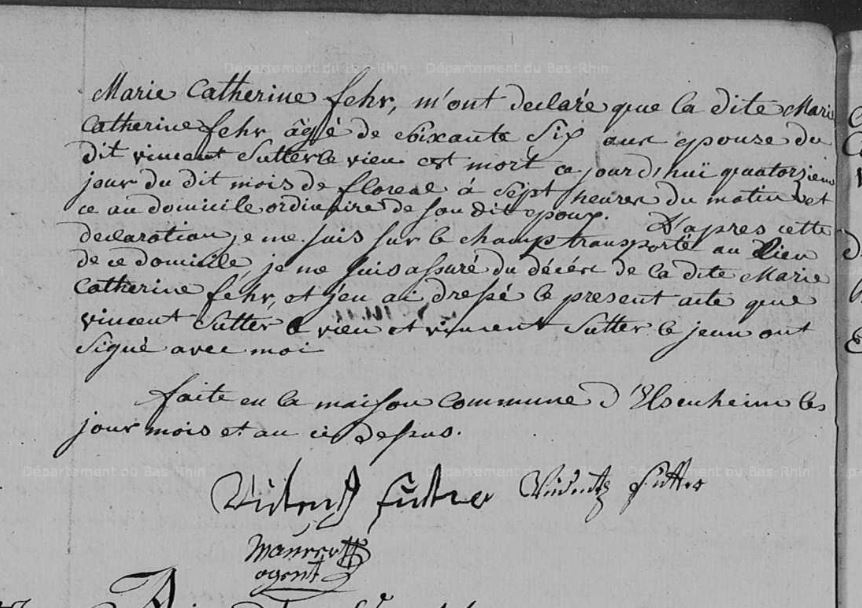 Marie Catherine fehr, m'ont declaré que la dite Marie
Catherine fehr âgé de soixante Six ans epouze du
dit vincent Sutter le vieu est mort ce jourd'hui quatorzieme
jour du dit mois de floreal à Sept heures du matin et
ce au domicile ordinaire de son dit epoux. D'apres cette
declaration je me suis sur le champ transporté au Lieu
de ce domicile, je me suis assuré du décéé de la dite Marie
Catherine fehr, et j'en ai dressé le present acte que
vincent Sutter le vieu et vincent Sutter le jeun ont
signé avec moi
faite en la maison Commune d'Elsenheim les
jour mois et an ci dessus.
Vincentz Sutter Vincentz Sutter
Maurer
agent
Département du Bas-Rhin Département du Bas-Rhin
Département du Bas-Rhin Département du Bas-Rhin